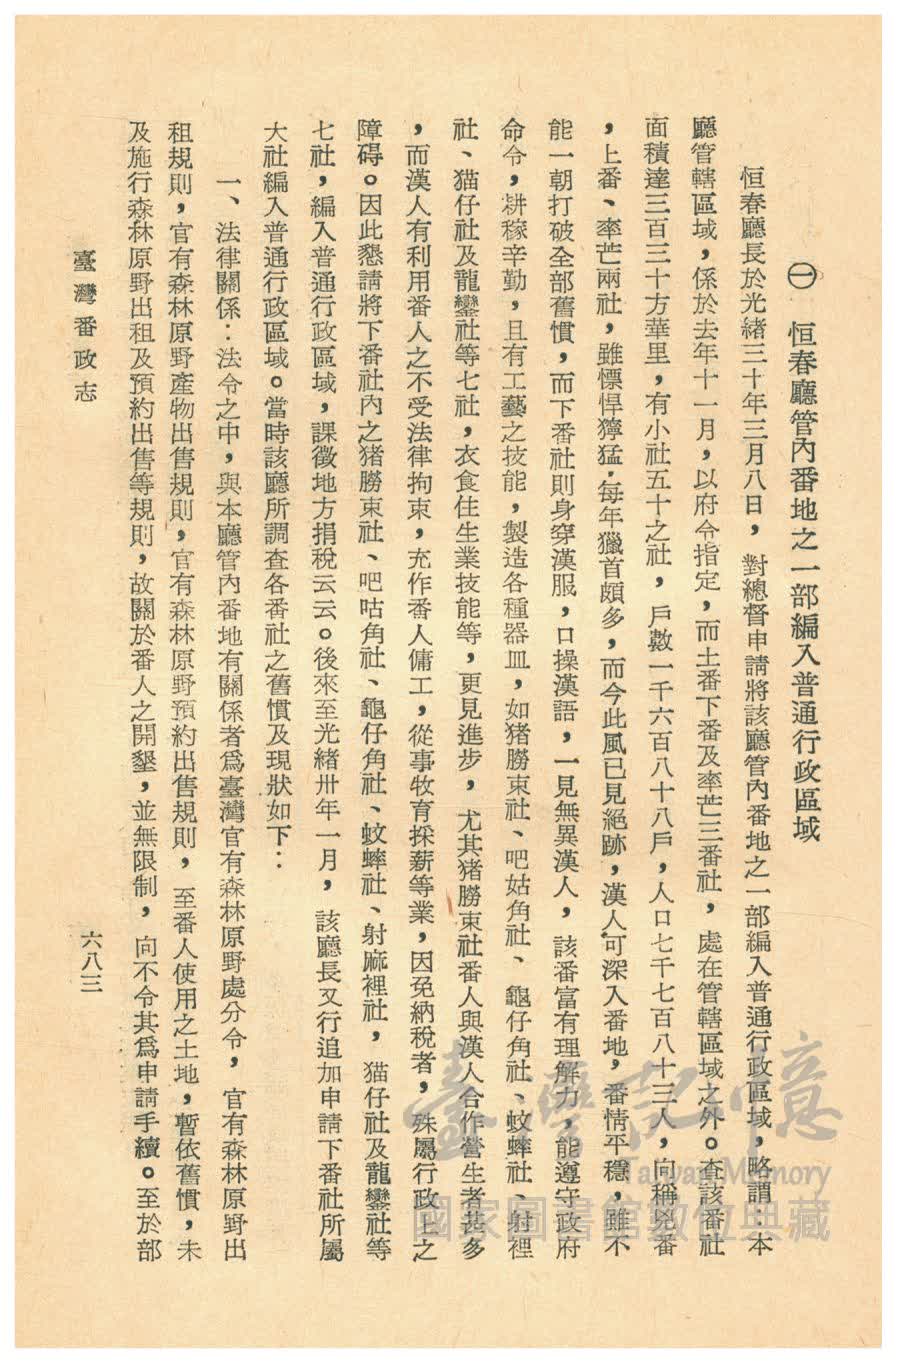 ㊀ 恒春廳管內番地之一部編入普通行政區域
恒春廳長於光緒三十年三月八日，對總督申請將該廳管內番地之一部編入普通行政區域，略謂：本
廳管轄區域，係於去年十一月，以府令指定，而上番下番及率芒三番社，處在管轄區域之外。查該番社
面積達三百三十方華里，有小社五十之社，戶數一千六百八十八戶，人口七千七百八十三人，向稱兇番
，上番、率芒兩社，雖慓悍獰猛，每年獵首頗多，而今此風已見絕跡，漢人可深入番地，番情平穩，雖不
能一朝打破全部舊慣，而下番社則身穿漢服，口操漢語，一見無異漢人，該番富有理解力，能遵守政府
命令，耕稼辛勤，且有工藝之技能，製造各種器皿，如猪勝束社、吧姑角社、龜仔角社、蚊蟀社、射裡
社、猫仔社及龍鑾社等七社，衣食住生業技能等，更見進步，尤其猪勝束社番人與漢人合作營生者甚多
，而漢人有利用番人之不受法律拘束，充作番人傭工，從事牧育採薪等業，因免納稅者，殊屬行政上之
障碍。因此懇請將下番社內之猪勝束社、吧咕角社、龜仔角社、蚊蟀社、射麻裡社，猫仔社及龍鑾社等
七社，編入普通行政區域，課徵地方捐稅云云。後來至光緒卅年一月，該廳長又行追加申請下番社所屬
大社編入普通行政區域。當時該廳所調査各番社之舊慣及現狀如下：
一、法律關係：法令之中，與本廳管內番地有關係者爲臺灣官有森林原野處分令，官有森林原野出
租規則，官有森林原野產物出售規則，官有森林原野預約出售規則，至番人使用之土地，暫依舊慣，未
及施行森林原野出租及預約出售等規則，故關於番人之開墾，並無限制，向不令其爲申請手續。至於部
臺灣番政志
六八三
臺灣記憶
Taiwan Memory
國家圖書館數位典藏